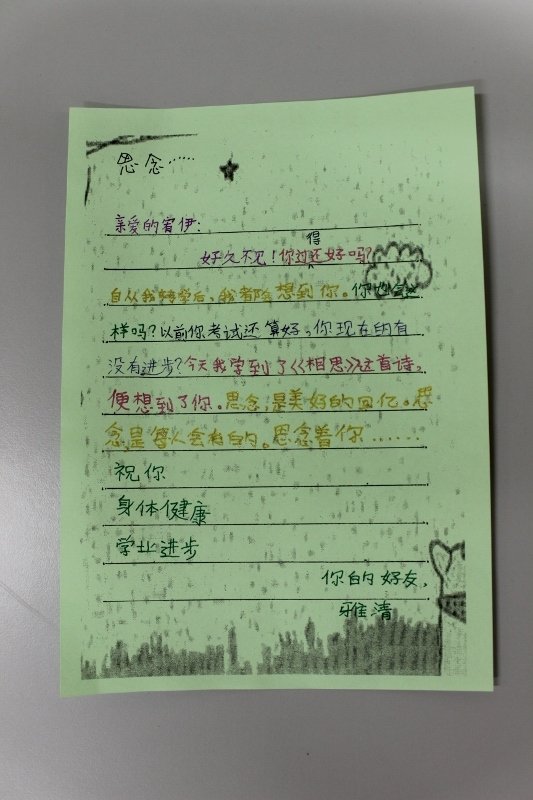 思念……
亲爱的宥伊：
好久不见！你过得还好吗？
自从我转学后，我都会想到你。你也会这
样吗？以前你考试还算好。你现在的有
没有进步？今天我学到了《相思》这首诗。
便想到了你。思念，是美好的回忆。思
念，是每人会有的。思念着你……
祝你
身体健康
学业进步
你的好友，
雅清